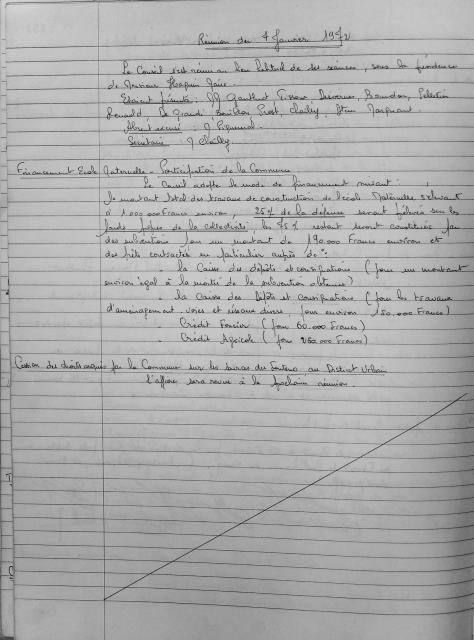 Réunion du 7 Janvier 1972
Le Conseil s'est réuni au lieu habituel de ses séances, sous la présidence
de Monsieur Maire.
Etaient présents : M Gauthier Tissier Desvernes, Bourdon, Pelletier
Renould, Le Grand,
Absent excusé : M
Secrétaire : M
Financement Ecole Maternelle - Participation de la Commune
Le Conseil adopte le mode de financement suivant :
le montant total des travaux de construction de l'école Maternelle s'élevant
à 1.000.000 Francs environ, 25% de la dépense seront prélevés sur les
fonds libres de la collectivité les 75% restant seront constitués par
des subventions pour un montant de 190.000 Francs environ et
des prêts contractés en particulier auprès de :
. la Caisse des dépôts et consignations (pour un montant
environ égal à la moitié de la subvention obtenue)
. la Caisse des Dépôts et Consignations (pour les travaux
d'aménagement voies et réseaux divers pour environ 150.000 Francs)
. Crédit Foncier (pour 60.000 Francs)
. Crédit Agricole (pour 250.000 Francs)
Cession des droits acquis par la Commune sur les au District Urbain
l'affaire sera revue à la prochaine réunion.